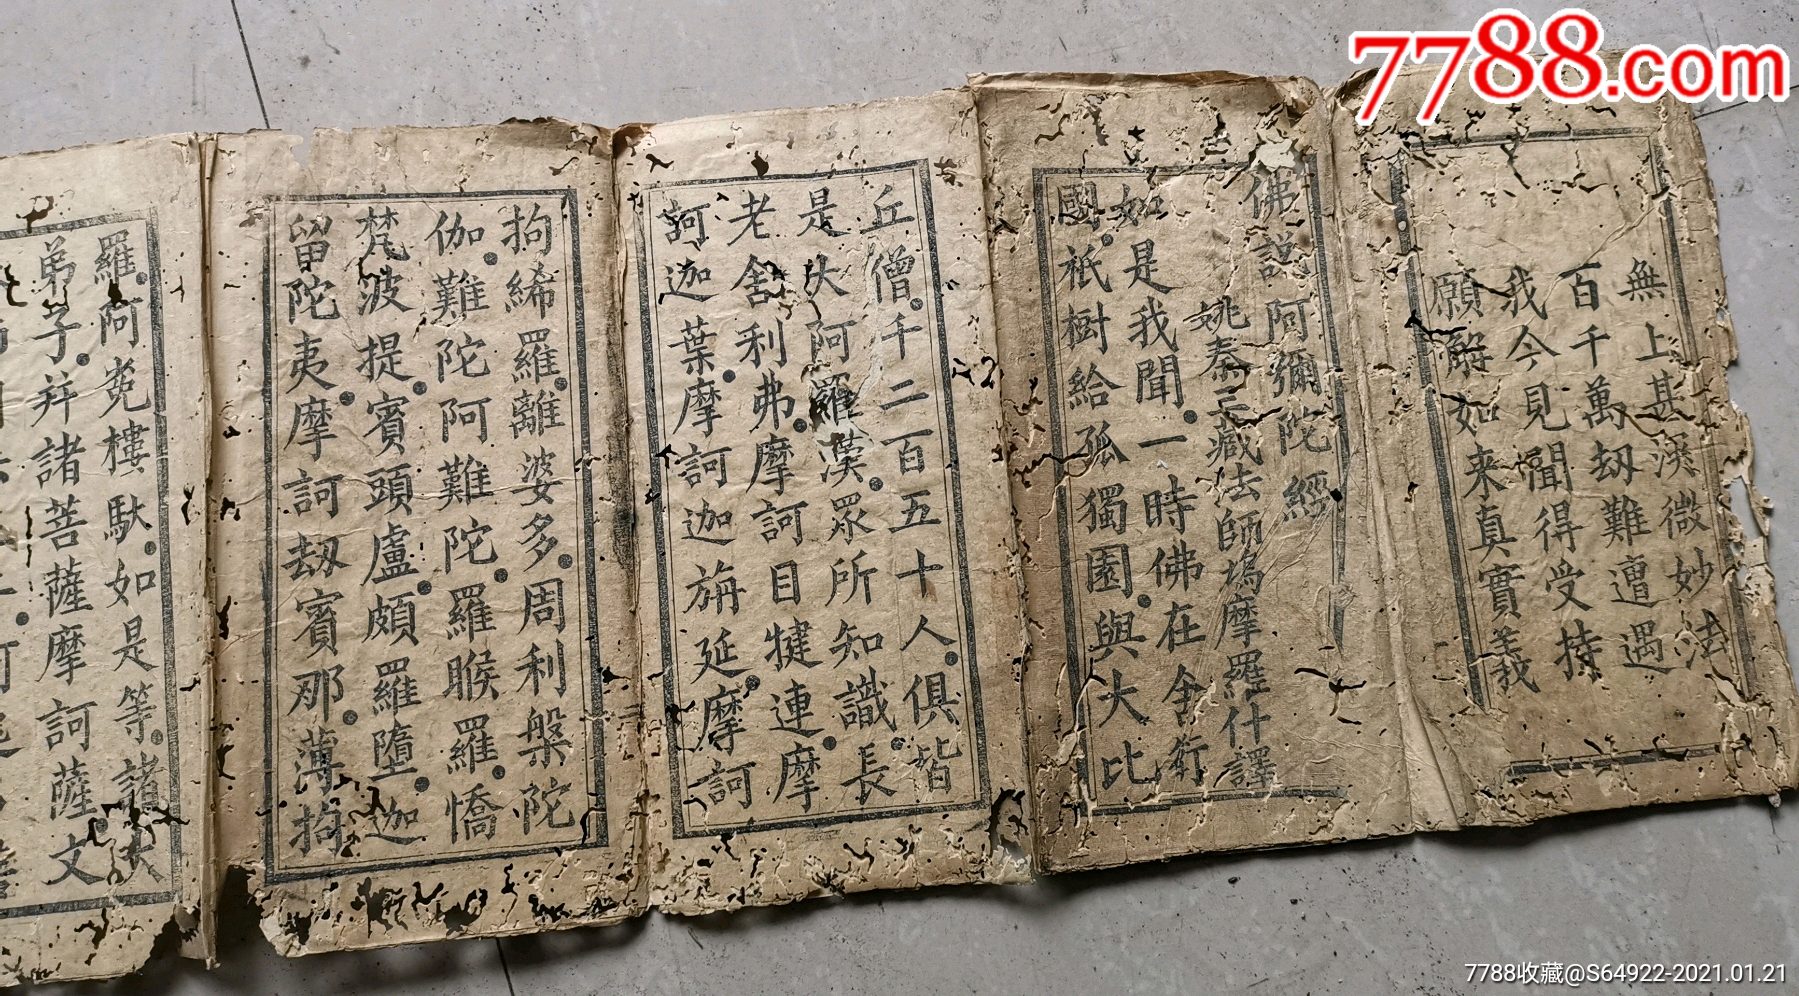 7788.com
無上甚深微妙法
百千萬劫難遭遇
我今見聞得受持
願解如来真實義
佛說阿彌陀經
姚秦三藏法師鳩摩羅什譯
如是我聞一時佛在舍衛
國祇樹給孤獨園與大比
丘僧千二百五十人俱皆
是大阿羅漢眾所知識長
老舍利弗摩訶目犍連摩
訶迦葉摩訶迦旃延摩訶
拘絺羅離婆多周利槃陀
伽難陀阿難陀羅睺羅憍
梵波提賓頭盧頗羅墮迦
留陀夷摩訶劫賓那薄拘
羅阿㝹樓馱如是等諸大
弟子并諸菩薩摩訶薩文
7788收藏@S64922-2021.01.21